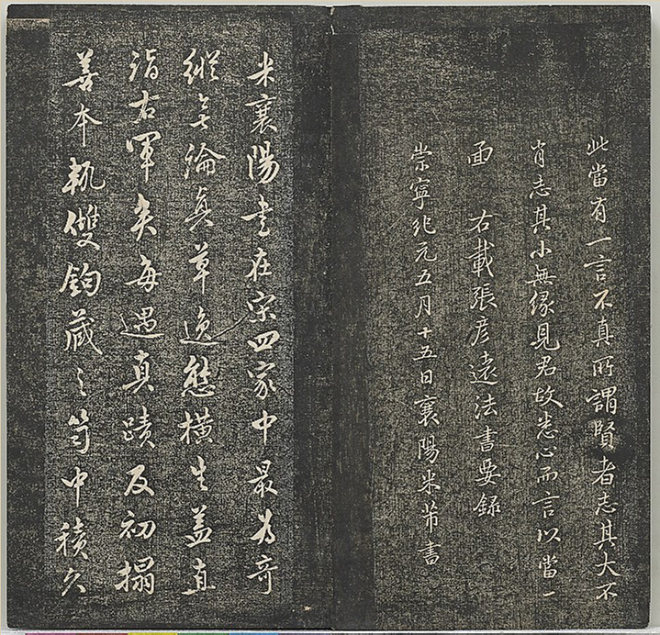 此當有一言不真所謂賢者志其大不
肖志其小無緣見君故悉心而言以當一
面 右載張彦遠法書要録
崇寧元五月十五日襄陽米芾書
米襄陽書在宋四家中最為奇
縱無論真草逸態橫生蓋直
詣右軍矣每遇真蹟及初搨
善本輒雙鈎藏之笥中積久